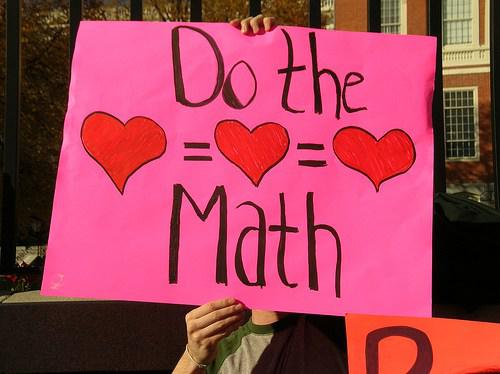 Do the
♥ = ♥ = ♥
Math
R